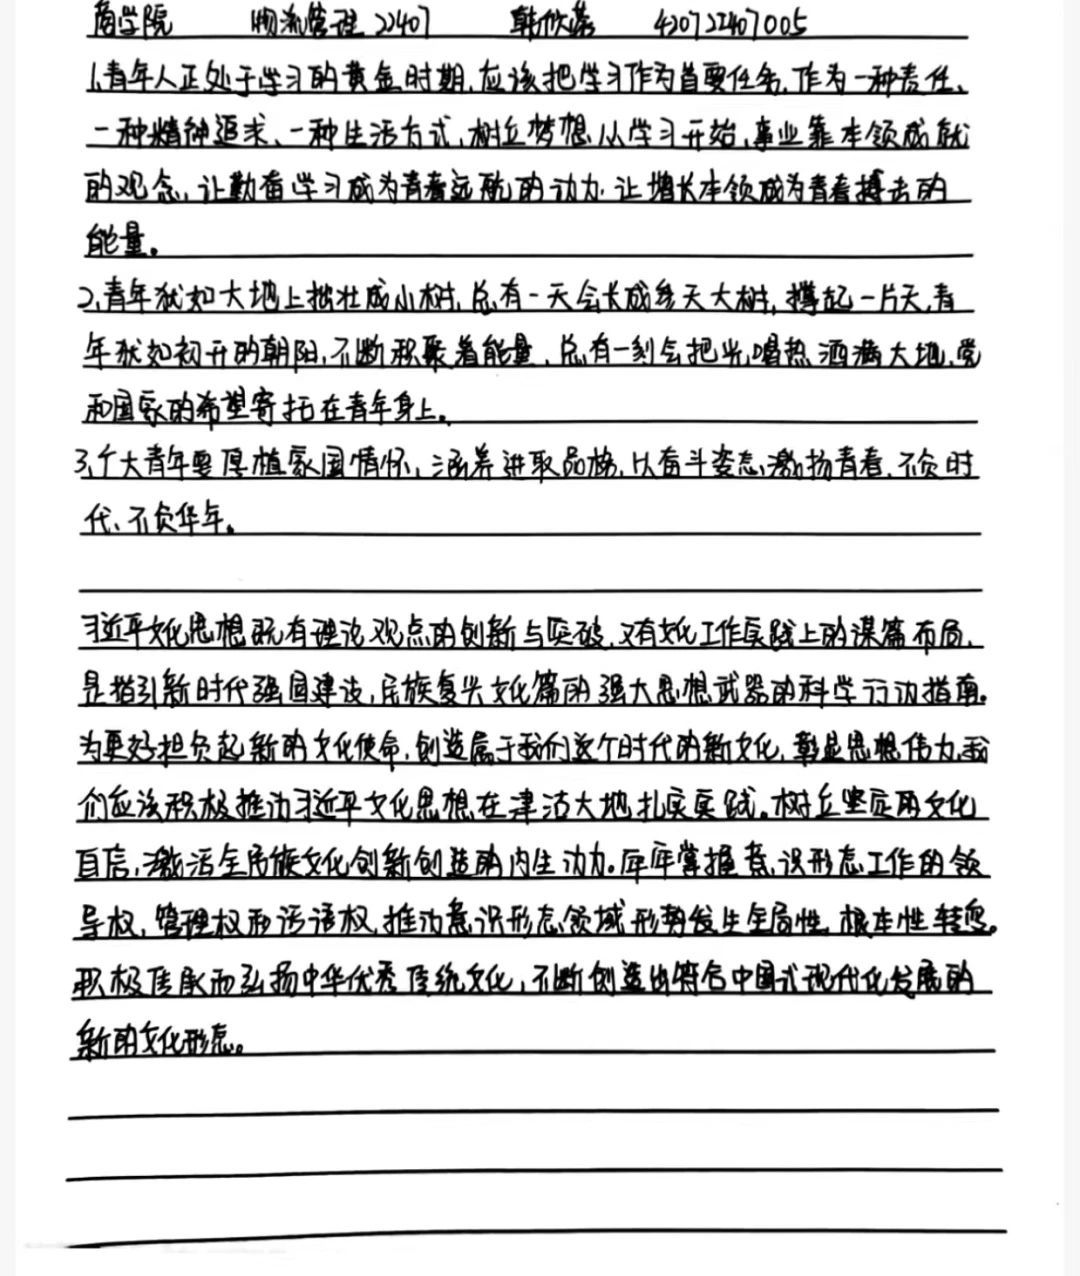 商学院 物流管理22407 韩欣蕊 420722407005
1、青年人正处于学习的黄金时期,应该把学习作为首要任务,作为一种责任、
一种精神追求、一种生活方式,树立梦想从学习开始,事业靠本领成就
的观念,让勤奋学习成为青春远航的动力,让增长本领成为青春搏击的
能量。
2、青年犹如大地上茁壮成小树,总有一天会长成参天大树,撑起一片天,青
年犹如初升的朝阳,不断积聚着能量,总有一刻会把光喝热洒满大地,党
和国家的希望寄托在青年身上。
3、广大青年要厚植家国情怀,涵养进取品格,以奋斗姿态激扬青春,不负时
代、不负华年。
习近平文化思想既有理论观点的创新与突破,又有文化工作实践上的谋篇布局,
是指引新时代强国建设,民族复兴文化篇的强大思想武器的科学行动指南。
为更好担负起新的文化使命,创造属于我们这个时代的新文化,彰显思想伟力,我
们应该积极推动习近平文化思想在津沽大地扎实实践。树立坚定的文化
自信,激活全民族文化创新创造的内生动力。牢牢掌握意识形态工作的领
导权,管理权和话语权,推动意识形态领域形势发生全局性,根本性转变。
积极传承而弘扬中华优秀传统文化,不断创造出符合中国式现代化发展的
新的文化形态。